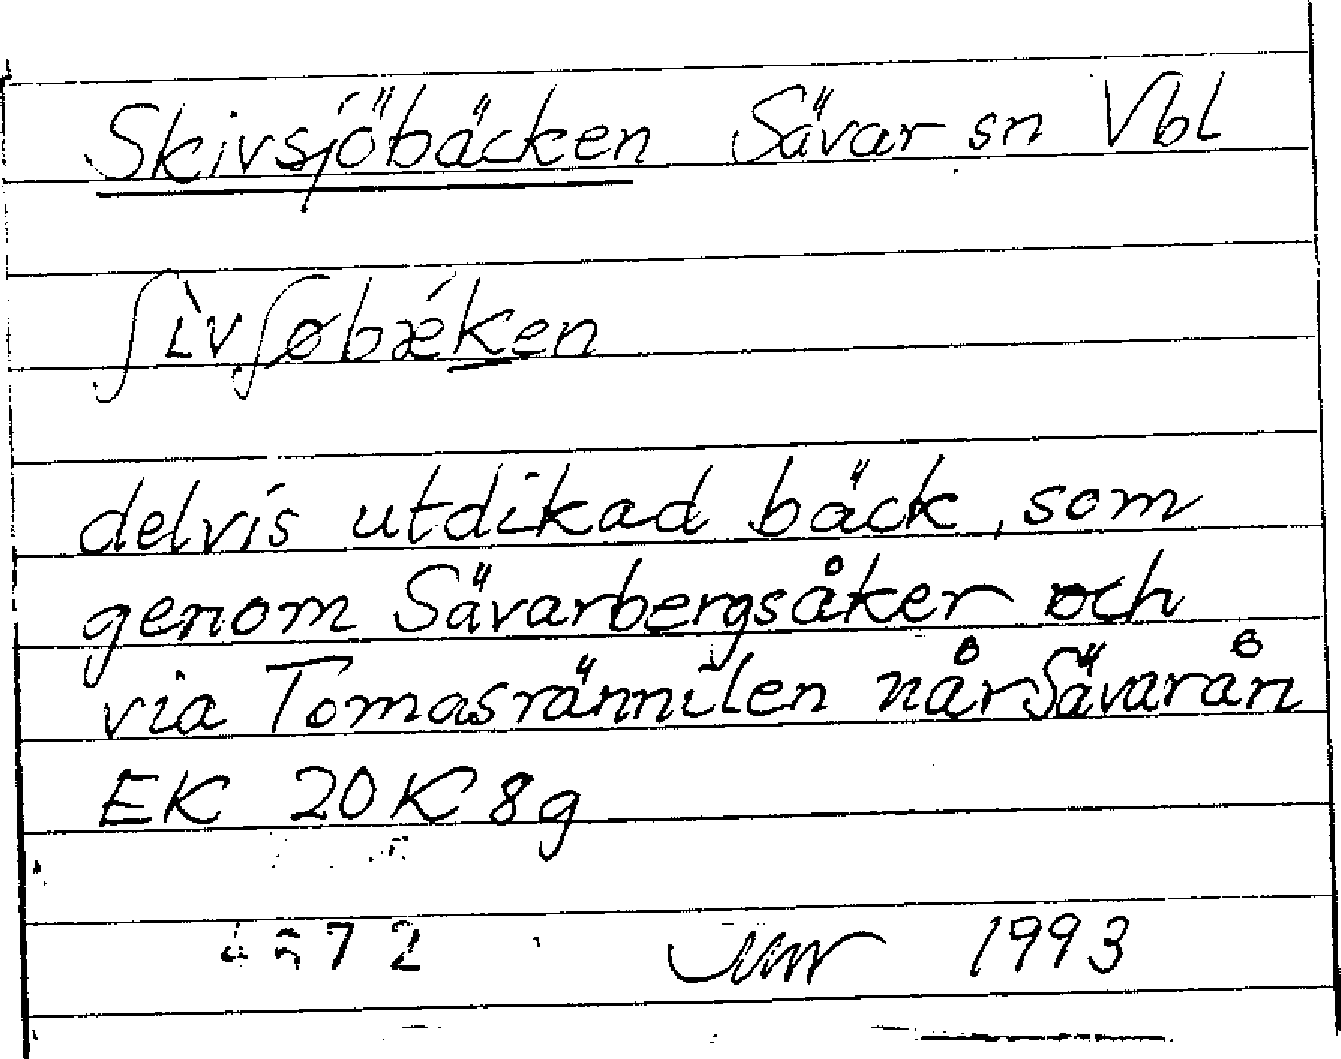 Skivsjöbäcken Sävar sn Vbl
ʃìvʃøbǽken
delvis utdikad bäck, som
genom Sävarbergsåker och
via Tomasrännilen når Sävarån
EK 20K 8g
1993